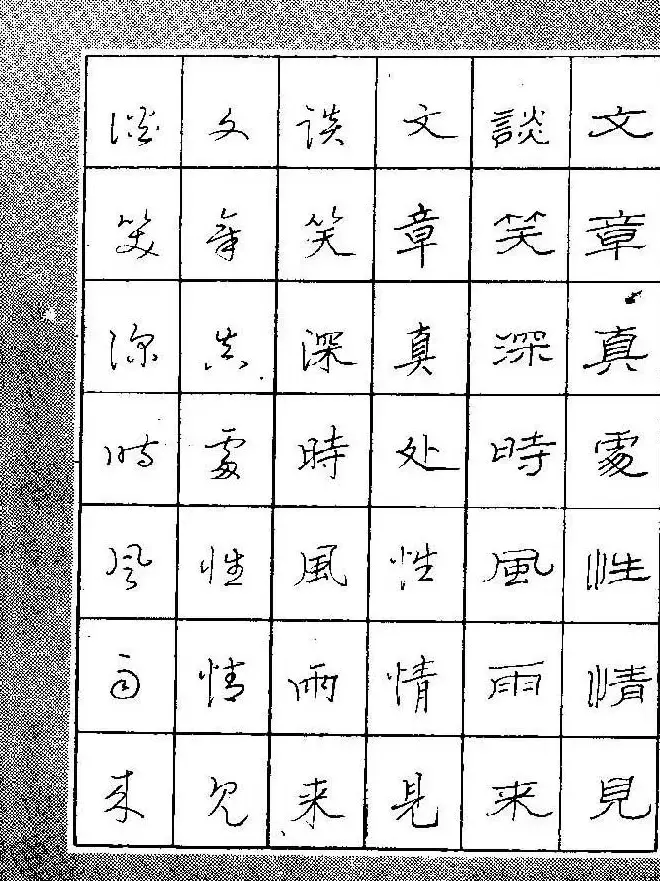 文章真處性情見
談笑深時風雨来
文章真处性情見
谈笑深時風雨来
文章真處性情见
谈笑深时风雨来